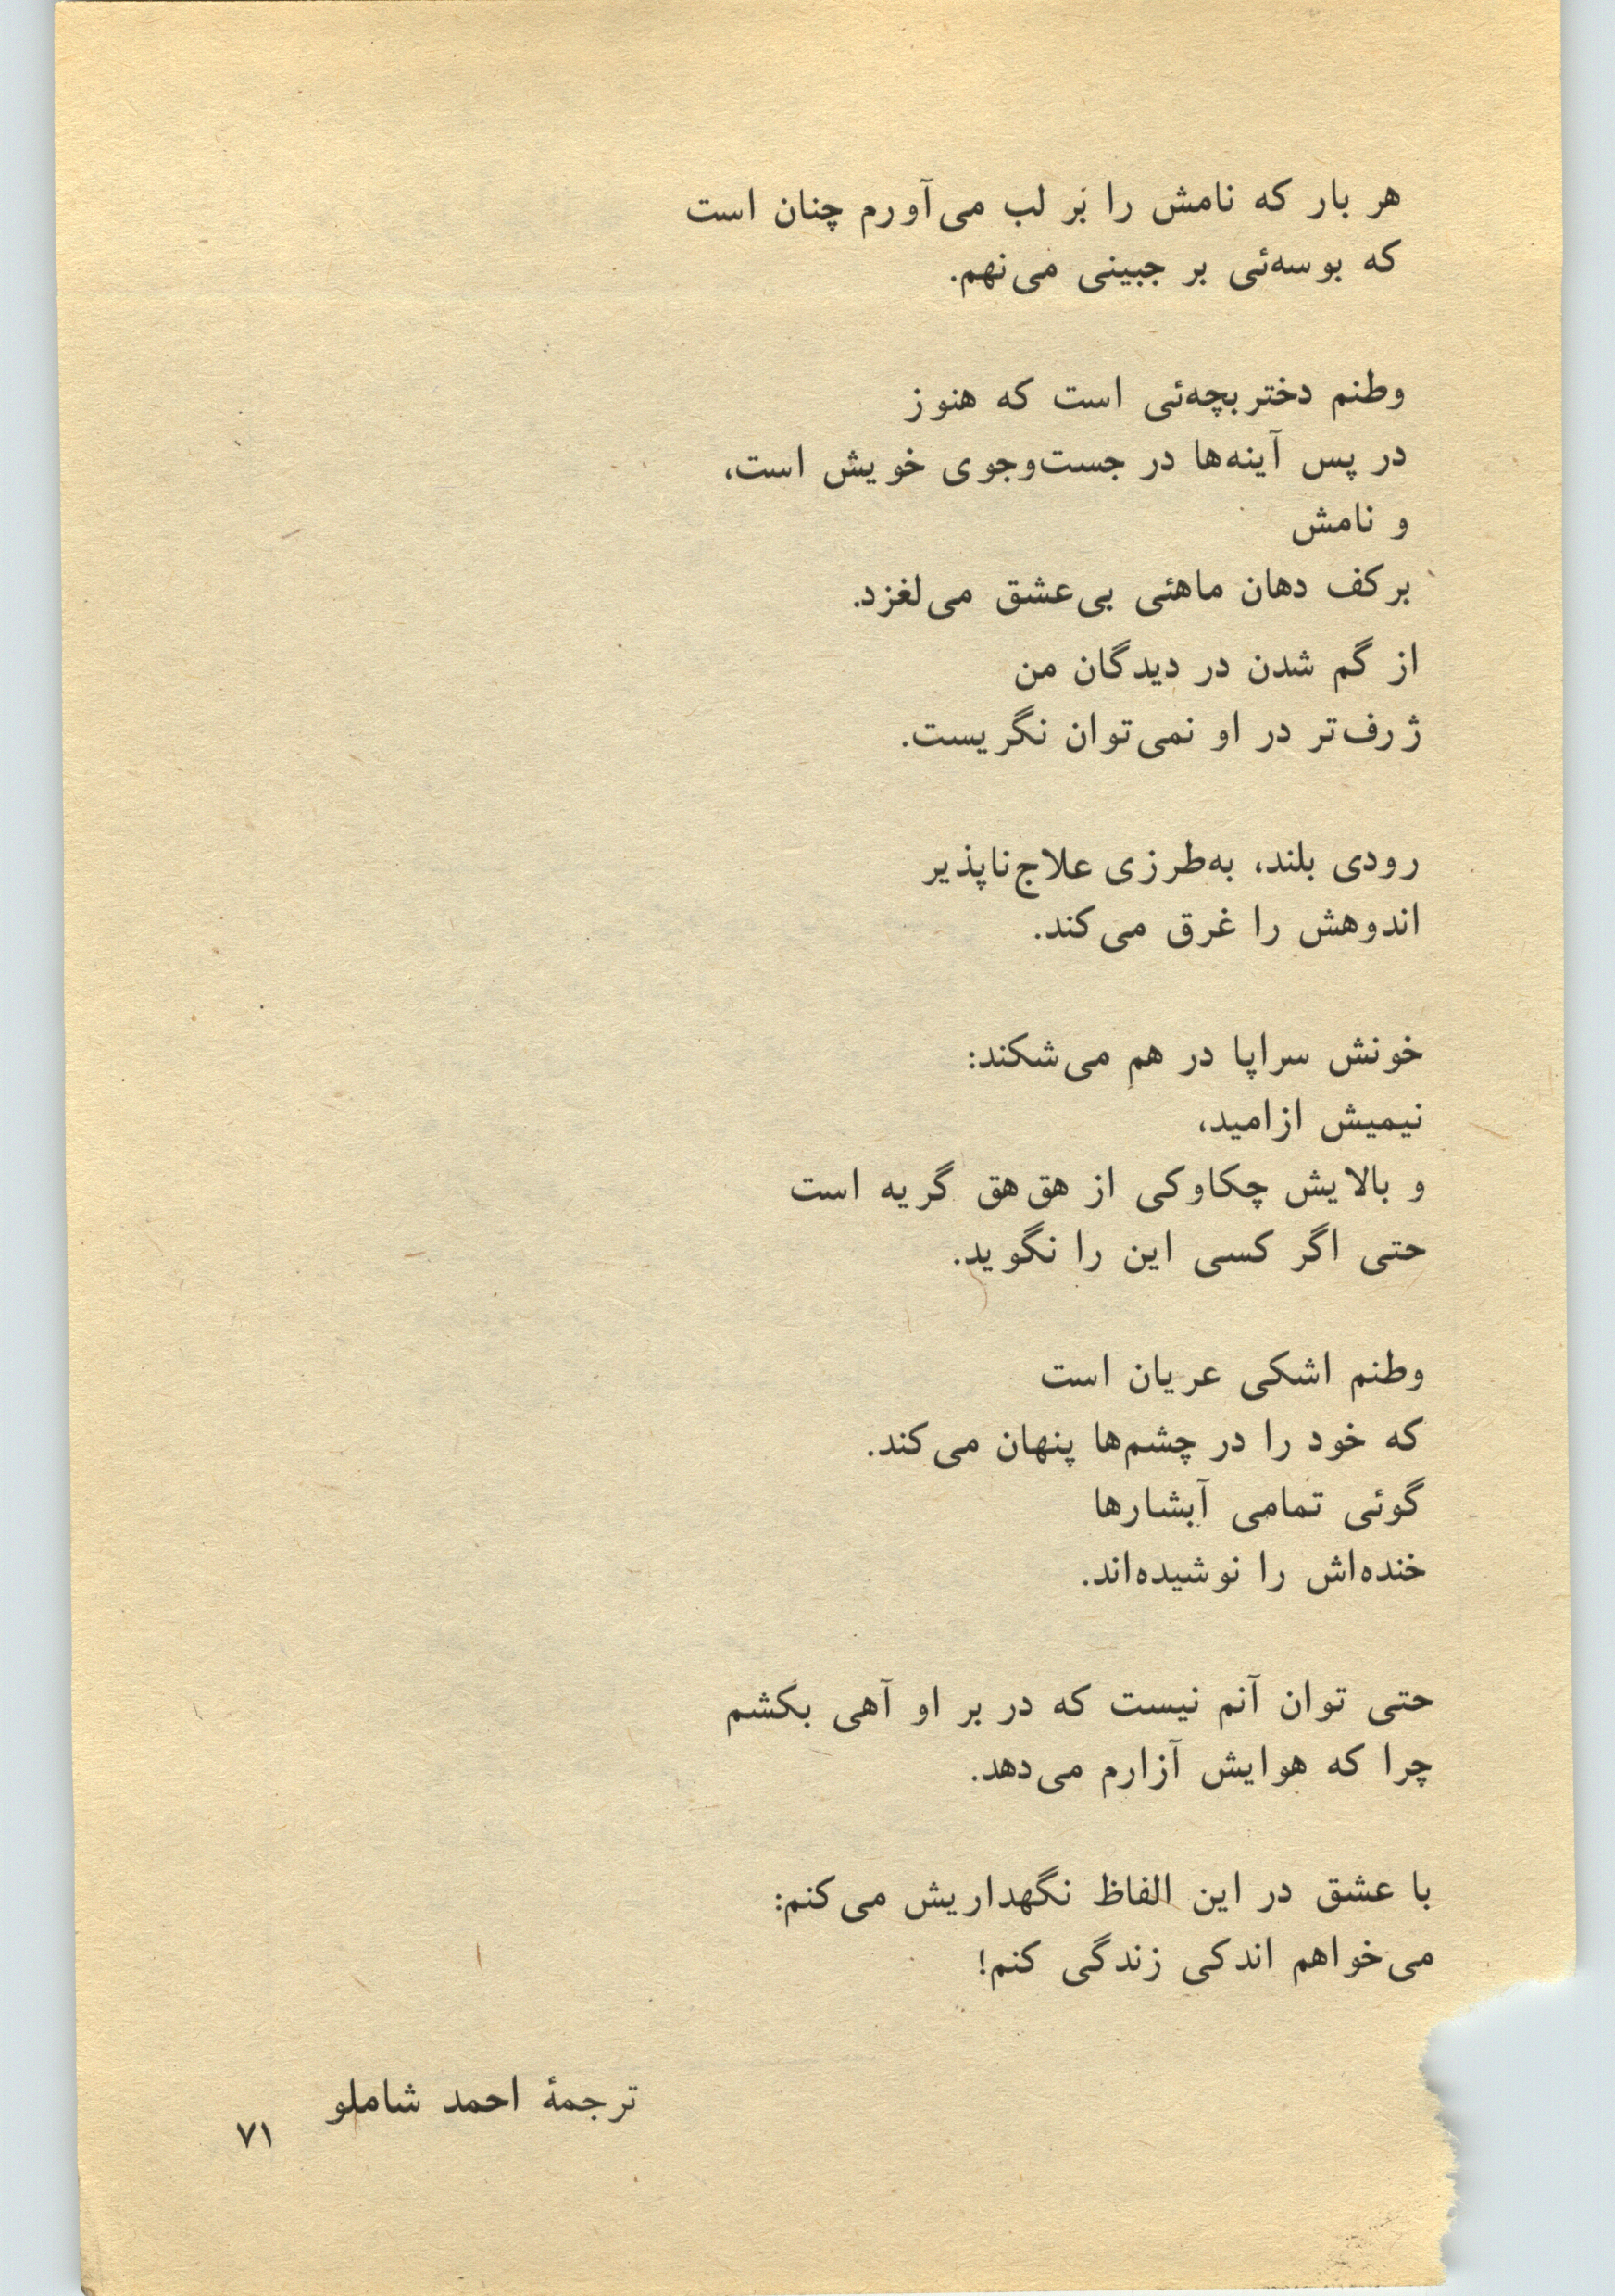 هر بار که نامش را بَر لب می‌آورم چنان است
که بوسه‌ئی بر جبینی می‌نهم.
وطنم دختربچه‌ئی است که هنوز
در پس آینه‌ها در جست‌وجوی خویش است،
و نامش
برکف دهان ماهئی بی‌عشق می‌لغزد.
از گم شدن در دیدگان من
ژرف‌تر در او نمی‌توان نگریست.
رودی بلند، به‌طرزی علاج‌ناپذیر
اندوهش را غرق می‌کند.
خونش سراپا در هم می‌شکند:
نیمیش ازامید،
و بالایش چکاوکی از هق‌هق گریه است
حتی اگر کسی این را نگوید.
وطنم اشکی عریان است
که خود را در چشم‌ها پنهان می‌کند.
گوئی تمامی آبشارها
خنده‌اش را نوشیده‌اند.
حتی توان آنم نیست که در بر او آهی بکشم
چرا که هوایش آزارم می‌دهد.
با عشق در این الفاظ نگهداریش می‌کنم:
می‌خواهم اندکی زندگی کنم!
ترجمهٔ احمد شاملو
۷۱